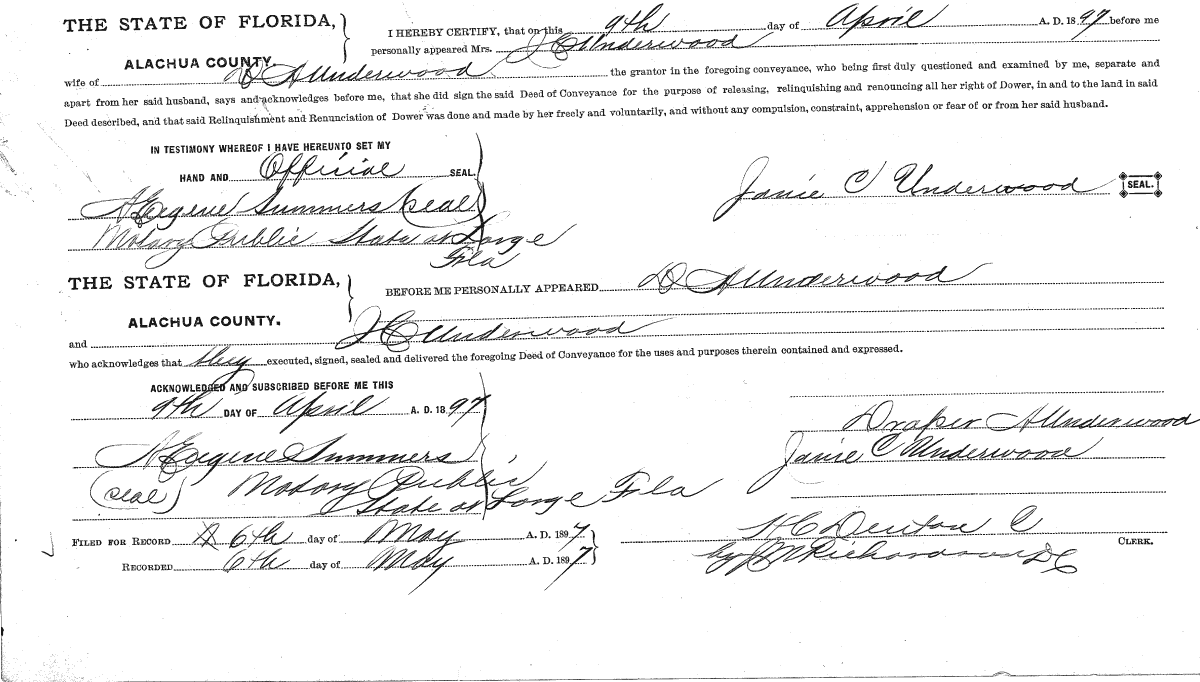 THE STATE OF FLORIDA, I HEREBY CERTIFY, that on this 9th day of April A. D. 1897 before me
ALACHUA COUNTY. personally appeared Mrs. J C Underwood
wife of D A Underwood the grantor in the foregoing conveyance, who being first duly questioned and examined by me, separate and
apart from her said husband, says and acknowledges before me, that she did sign the said Deed of Conveyance for the purpose of releasing, relinquishing and renouncing all her right of Dower, in and to the land in said
Deed described, and that said Relinquishment and Renunciation of Dower was done and made by her freely and voluntarily, and without any compulsion, constraint, apprehension or fear of or from her said husband.
IN TESTIMONY WHEREOF I HAVE HEREUNTO SET MY
HAND AND Official SEAL.
Janie C Underwood SEAL.
H Eugene Summers (seal)
Notary Public State at Large
Fla
THE STATE OF FLORIDA, BEFORE ME PERSONALLY APPEARED D A Underwood
ALACHUA COUNTY.
and J C Underwood
who acknowledges that they executed, signed, sealed and delivered the foregoing Deed of Conveyance for the uses and purposes therein contained and expressed.
ACKNOWLEDGED AND SUBSCRIBED BEFORE ME THIS
9th DAY OF April A. D. 1897
Draper A Underwood
H Eugene Summers
Janie C Underwood
(seal) Notary Public
State at Large Fla
H C Denton C
FILED FOR RECORD 6th day of May A. D. 1897
CLERK.
RECORDED 6th day of May A. D. 1897
by Richardson DC